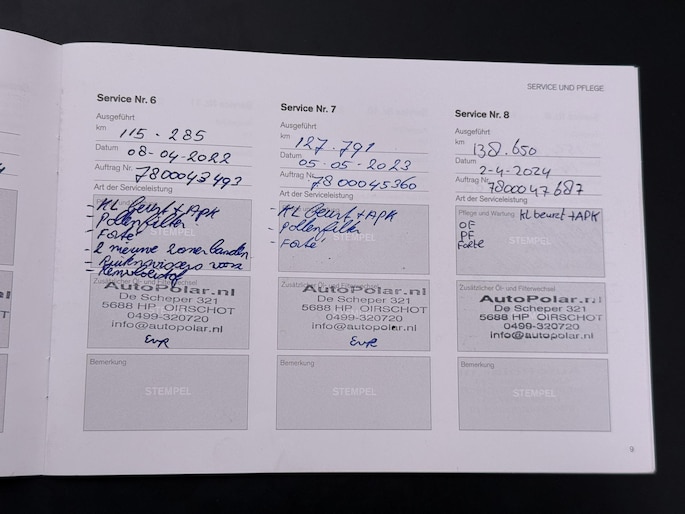 SERVICE UND PFLEGE
Service Nr. 6
Ausgeführt
km 115.285
Datum 08-04-2022
Auftrag Nr. 7800043493
Art der Serviceleistung
- KL Beurt + APK
- Pollenfilter
- Forte
- 2 nieuwe zomerbanden
- Ruitenwissers voor
- Remvloeistof
Zusätzlicher Öl- und Filterwechsel
AutoPolar.nl
De Scheper 321
5688 HP OIRSCHOT
0499-320720
info@autopolar.nl
Bemerkung
STEMPEL
Service Nr. 7
Ausgeführt
km 127.791
Datum 05-05-2023
Auftrag Nr. 7800045360
Art der Serviceleistung
- KL Beurt + APK
- Pollenfilter
- Forte
Zusätzlicher Öl- und Filterwechsel
AutoPolar.nl
De Scheper 321
5688 HP OIRSCHOT
0499-320720
info@autopolar.nl
Bemerkung
STEMPEL
Service Nr. 8
Ausgeführt
km 138.650
Datum 2-4-2024
Auftrag Nr. 7800047687
Art der Serviceleistung
Pflege und Wartung KL beurt + APK
OF
PF
Forte
STEMPEL
Zusätzlicher Öl- und Filterwechsel
AutoPolar.nl
De Scheper 321
5688 HP OIRSCHOT
0499-320720
info@autopolar.nl
Bemerkung
STEMPEL
9